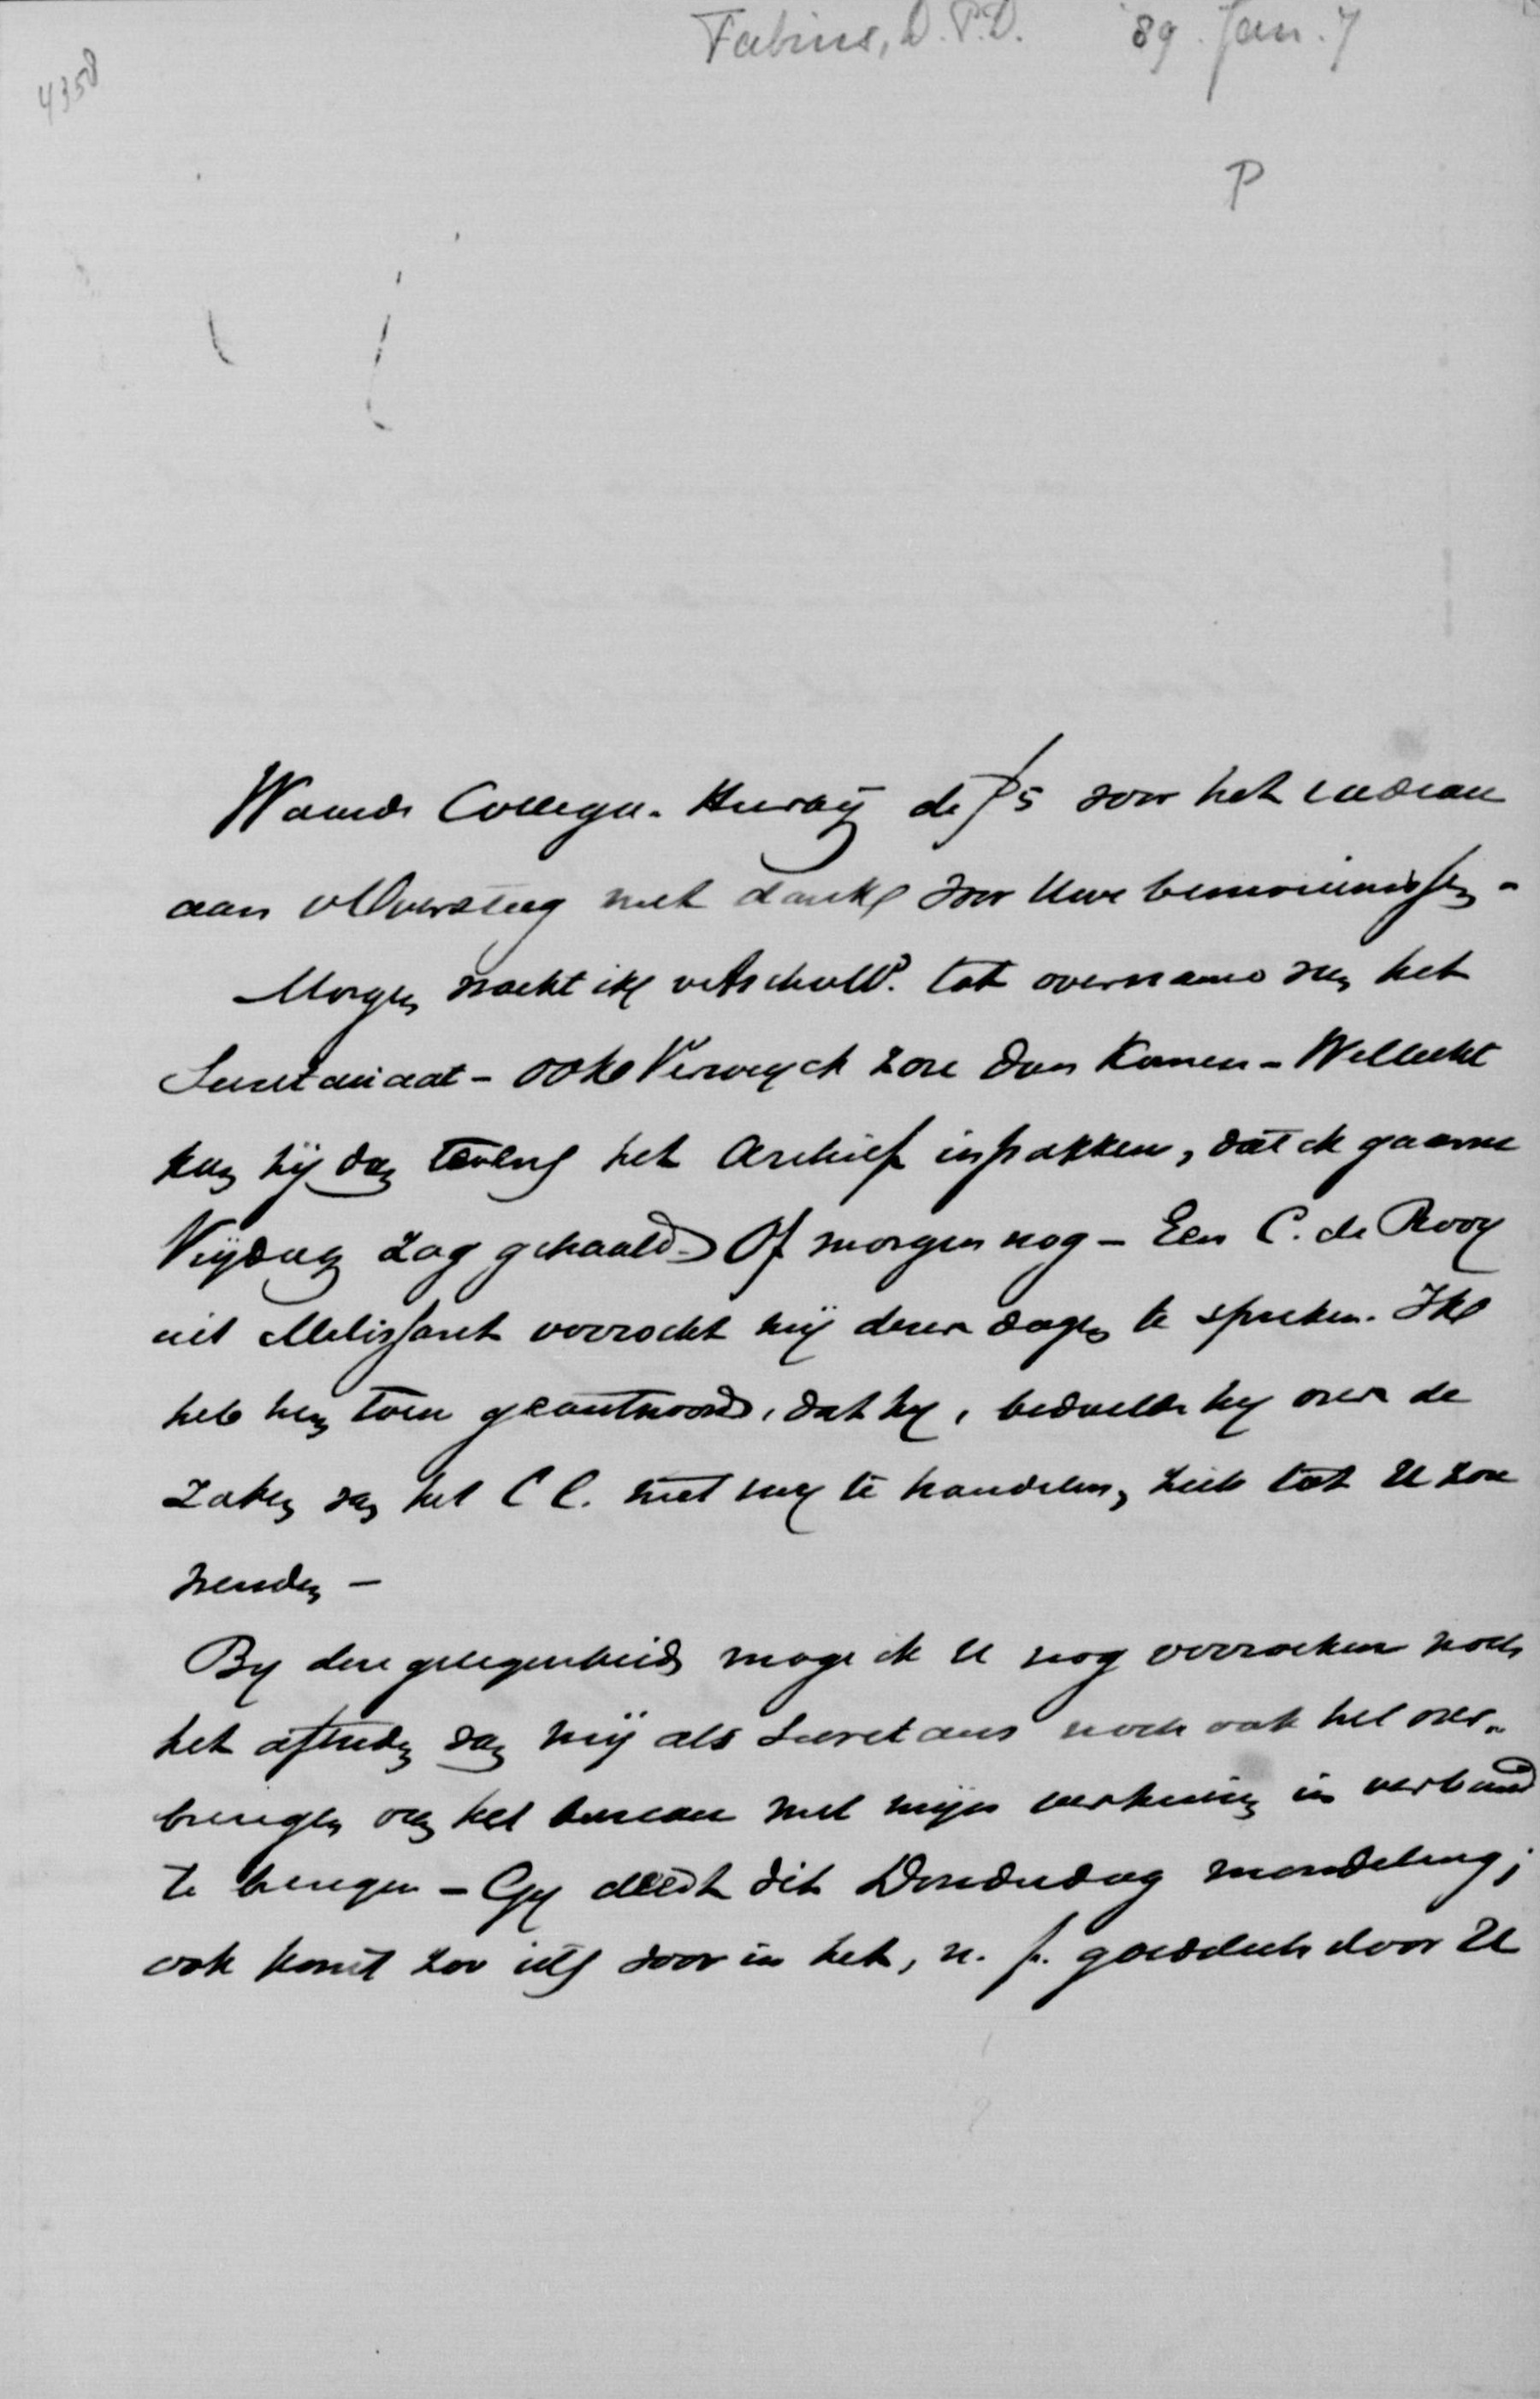 Fabius, D.P.D. '89. Jan. 7
4358
P
Waarde Collega. Hierbij de f 5 voor het cadeau
aan v Oversteeg met dank voor Uwe bemoeienissen -
Morgen wacht ik tot overname van het
Secretariaat - ook Verweyck zou dan komen - Wellicht
kan hij dan tevens het Archief inpakken, dat ik gaarne
Vrijdag zag gehaald. Of morgen nog - Een C. de Rooy
uit Melissant verzocht mij dezer dagen te spreken. Ik
heb hem toen geantwoord, dat hij, bedoelde hij over de
zaken van het C C. met mij te handelen, zich tot U zou
wenden -
By deze gelegenheid moge ik U nog verzoeken noch
het aftreden van mij als Secretaris noch ook het over-
brengen van het bureau met mijn verkiezing in verband
te brengen - Gy deedt dit Donderdag mondeling;
ook komt zoo iets voor in het, n. f. goeddeels door U